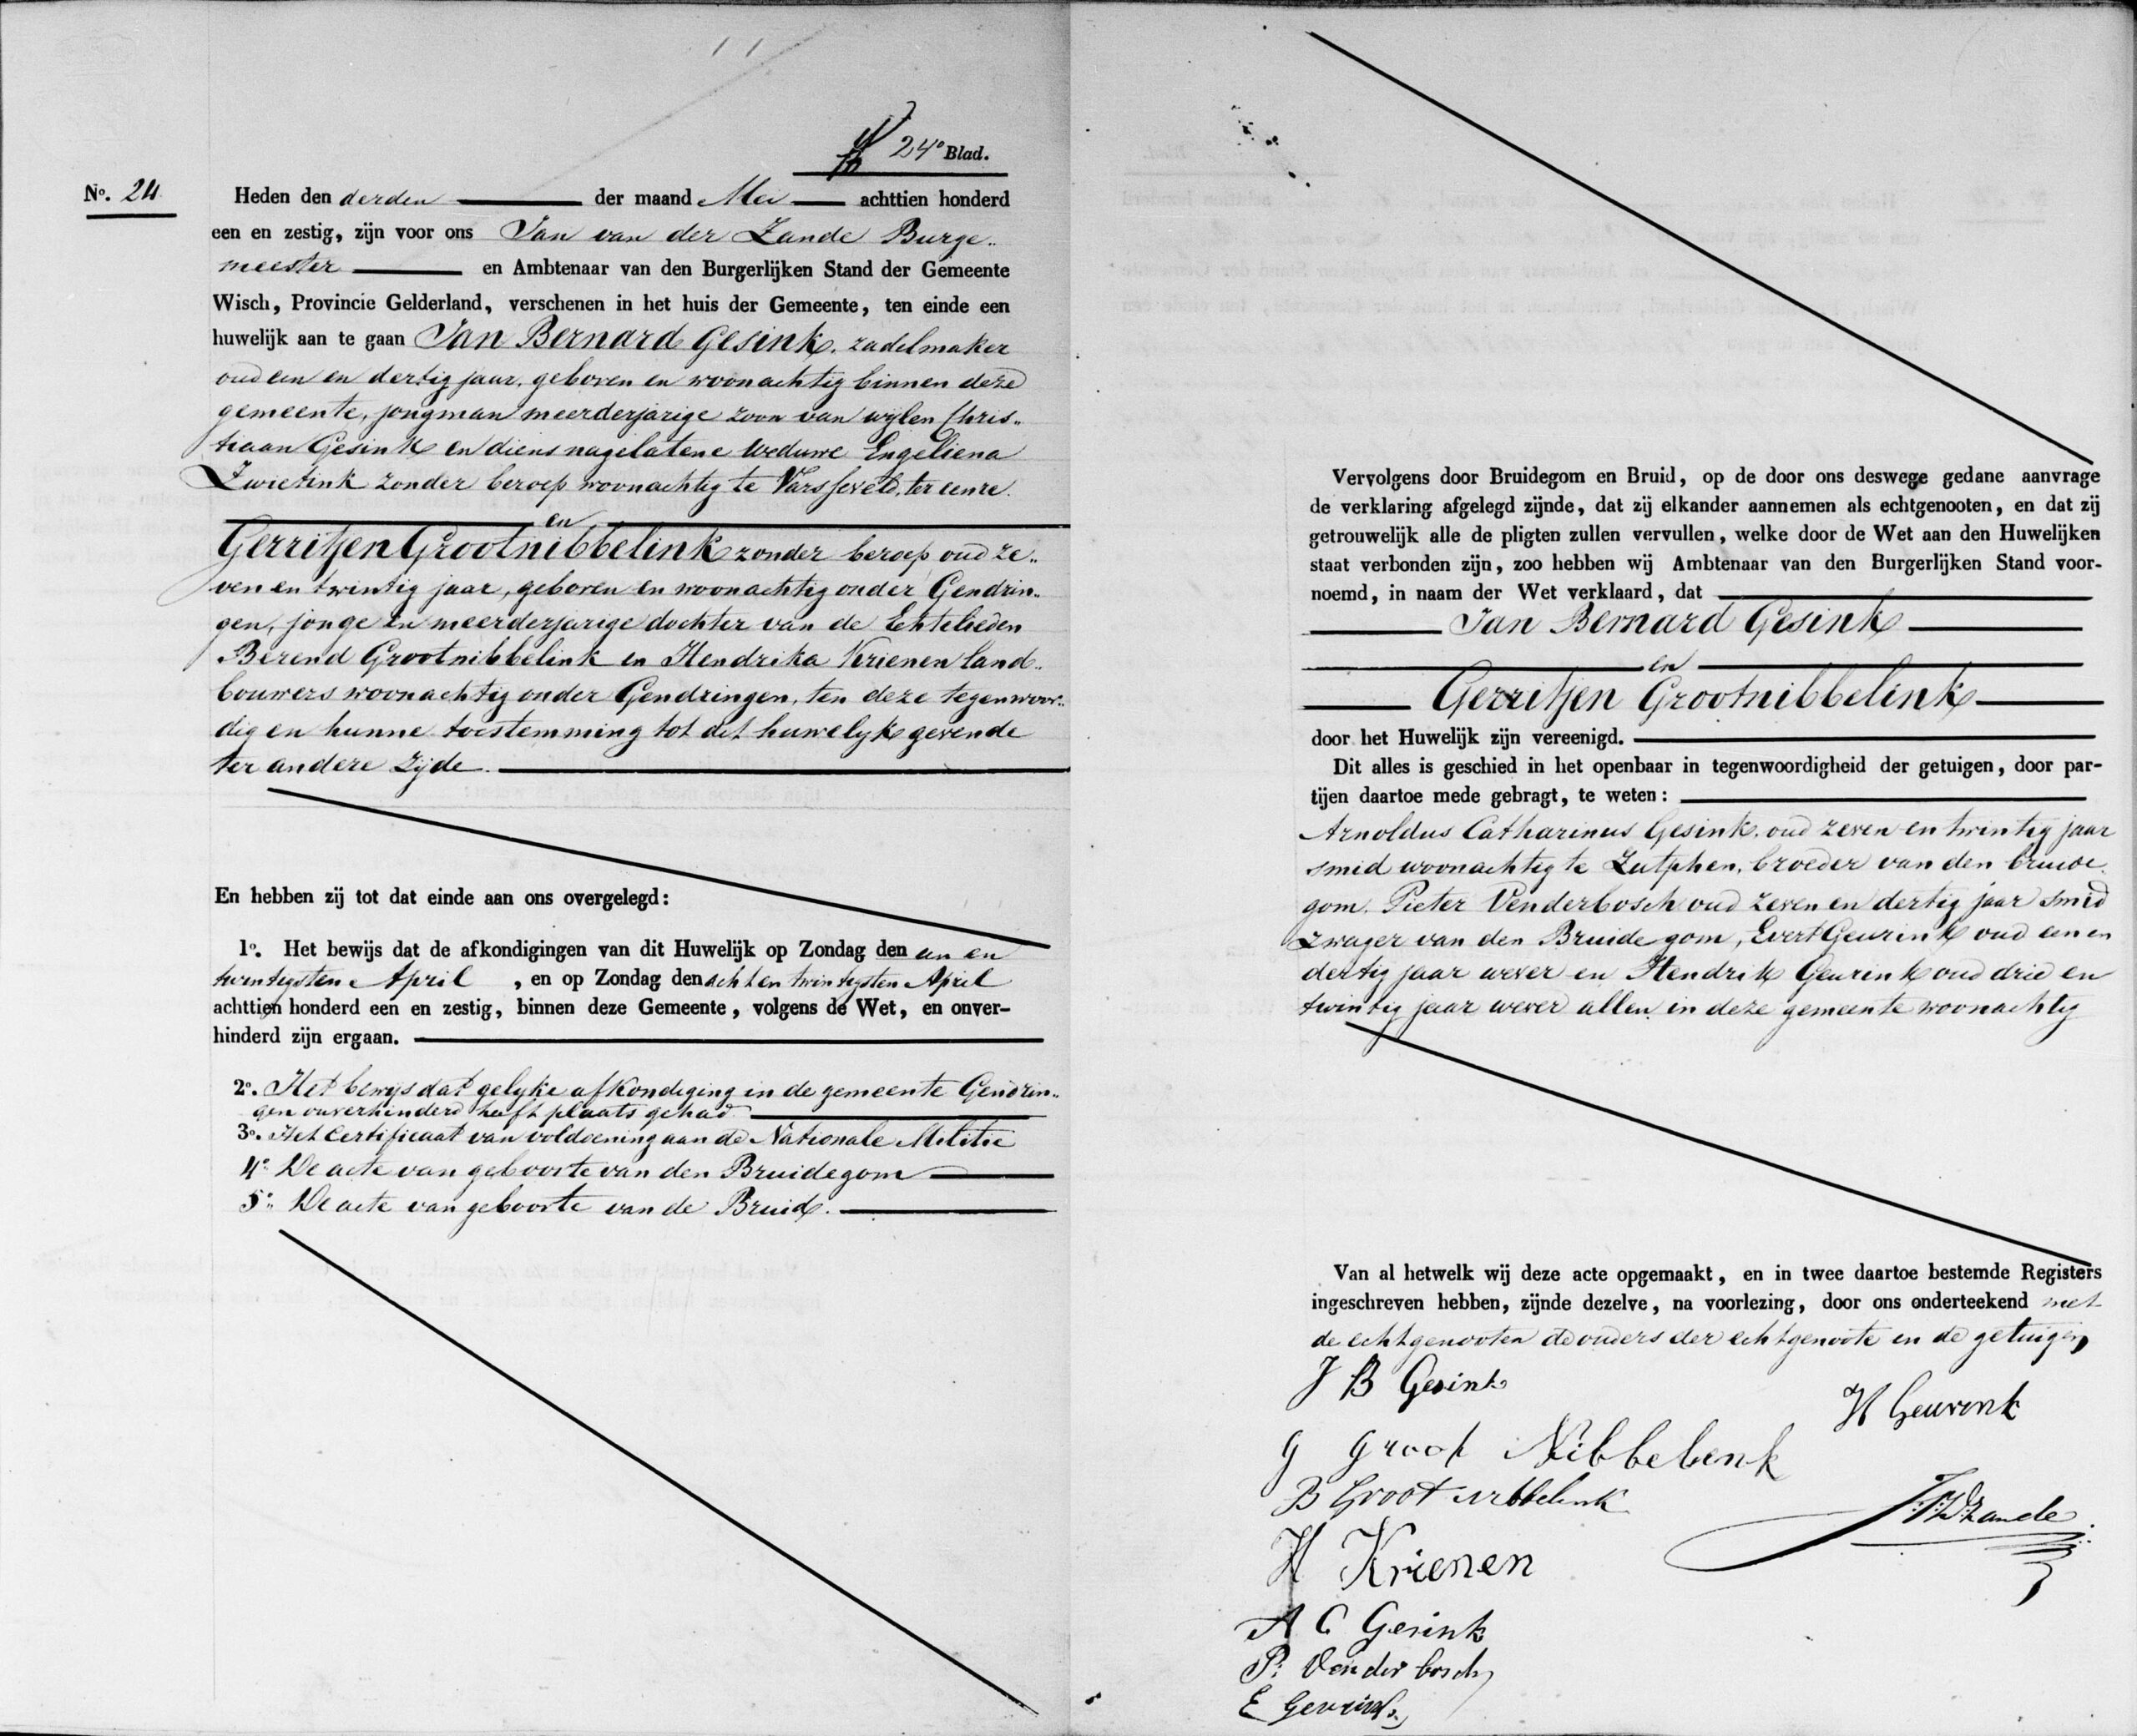 24e Blad.
No. 24
Heden den derden der maand Mei achttien honderd
een en zestig, zijn voor ons Jan van der Zande Burge„
meester en Ambtenaar van den Burgerlijken Stand der Gemeente
Wisch, Provincie Gelderland, verschenen in het huis der Gemeente, ten einde een
huwelijk aan te gaan Jan Bernard Gesink, zadelmaker
oud een en dertig jaar, geboren en woonachtig binnen deze
gemeente, jongman meerderjarige zoon van wijlen Chris„
tiaan Gesink en diens nagelatene weduwe Engeliena
Zwietink zonder beroep woonachtig te Varsseveld, ter eenre.
en
Gerritjen Grootnibbelink zonder beroep oud ze„
ven en twintig jaar, geboren en woonachtig onder Gendrin„
gen, jonge en meerderjarige dochter van de Echtelieden
Berend Grootnibbelink en Hendrika Krienen land„
bouwers woonachtig onder Gendringen, ten deze tegenwoor„
dig en hunne toestemming tot dit huwelyk gevende
ter andere zijde.
En hebben zij tot dat einde aan ons overgelegd:
1o. Het bewijs dat de afkondigingen van dit Huwelijk op Zondag den een en
twintigsten April , en op Zondag den acht en twintigsten April
achttien honderd een en zestig, binnen deze Gemeente, volgens de Wet, en onver-
hinderd zijn ergaan.
2o. Het bewys dat gelyke afkondiging in de gemeente Gendrin„
gen onverhinderd heeft plaats gehad
3o. Het Certificaat van voldoening aan de Nationale Militie
4o. De acte van geboorte van den Bruidegom
5o. De acte van geboorte van de Bruid.
Vervolgens door Bruidegom en Bruid, op de door ons deswege gedane aanvrage
de verklaring afgelegd zijnde, dat zij elkander aannemen als echtgenooten, en dat zij
getrouwelijk alle de pligten zullen vervullen, welke door de Wet aan den Huwelijken
staat verbonden zijn, zoo hebben wij Ambtenaar van den Burgerlijken Stand voor-
noemd, in naam der Wet verklaard, dat
Jan Bernard Gesink
en
Gerritjen Grootnibbelink
door het Huwelijk zijn vereenigd.
Dit alles is geschied in het openbaar in tegenwoordigheid der getuigen, door par-
tijen daartoe mede gebragt, te weten:
Arnoldus Catharinus Gesink, oud zeven en twintig jaar
smid woonachtig te Zutphen, broeder van den bruide„
gom, Pieter Venderbosch oud zeven en dertig jaar smid
zwager van den Bruidegom, Evert Geurink oud een en
dertig jaar wever en Hendrik Geurink oud drie en
twintig jaar wever allen in deze gemeente woonachtig
Van al hetwelk wij deze acte opgemaakt, en in twee daartoe bestemde Registers
ingeschreven hebben, zijnde dezelve, na voorlezing, door ons onderteekend met
de echtgenooten de ouders der echtgenoote en de getuigen
J B Gesink
H Geurink
G Groot Nibbelenk
B Groot nibbelink
JVDZande
H Krienen
A C Gesink
P. Venderbosch
E Geurink